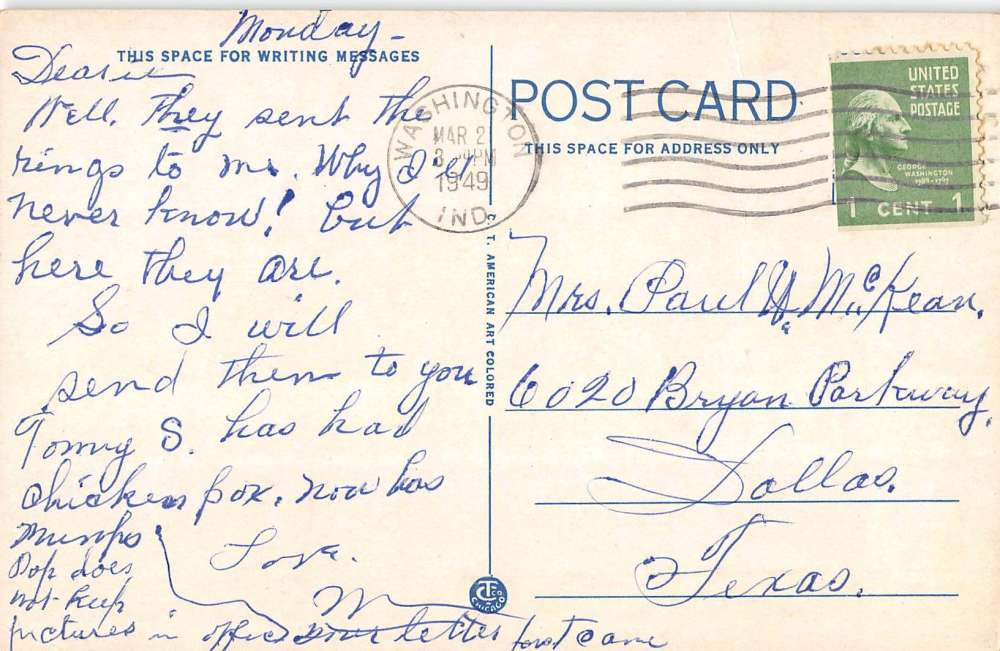 Monday -
THIS SPACE FOR WRITING MESSAGES
Dearie
Well, they sent the
rings to me. Why I'll
never know! but
here they are.
So I will
send them to you
Tommy S. has had
chicken pox, now has
Mumps
Love.
M
Pop does
not keep
pictures in office your letter just came
C. T. AMERICAN ART COLORED
WASHINGTON
MAR 2
3 PM
1949
IND.
POST CARD
THIS SPACE FOR ADDRESS ONLY
UNITED
STATES
POSTAGE
GEORGE
WASHINGTON
1789-1797
1 CENT 1
Mrs. Paul W. McKean,
6020 Bryan Parkway,
Dallas,
Texas.
CHICAGO